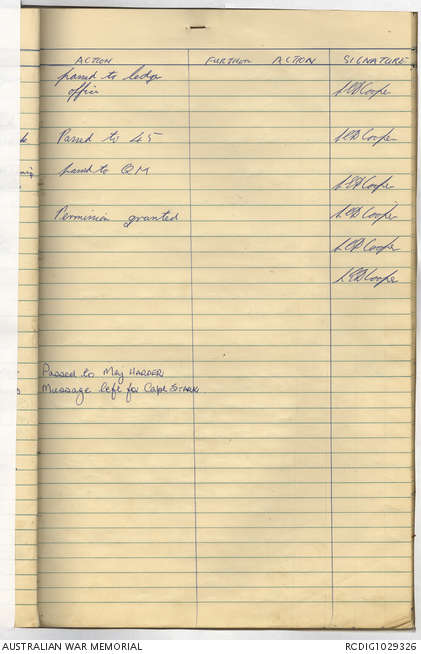 ACTION FURTHER ACTION SIGNATURE
passed to ledger
office
LEDCooper
Passed to LS LEDCooper
passed to QM
LEDCooper
Permission granted LEDCooper
LEDCooper
LEDCooper
Passed to Maj HARDER
Message left for Capt STARK.
AUSTRALIAN WAR MEMORIAL RCDIG1029326